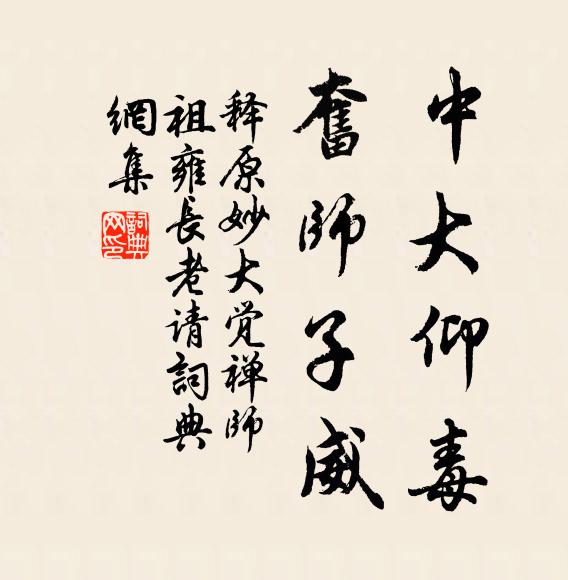 中大仰毒
奮師子威
释原妙大觉禅師
祖雍長老请詞典
網集
詞典網印